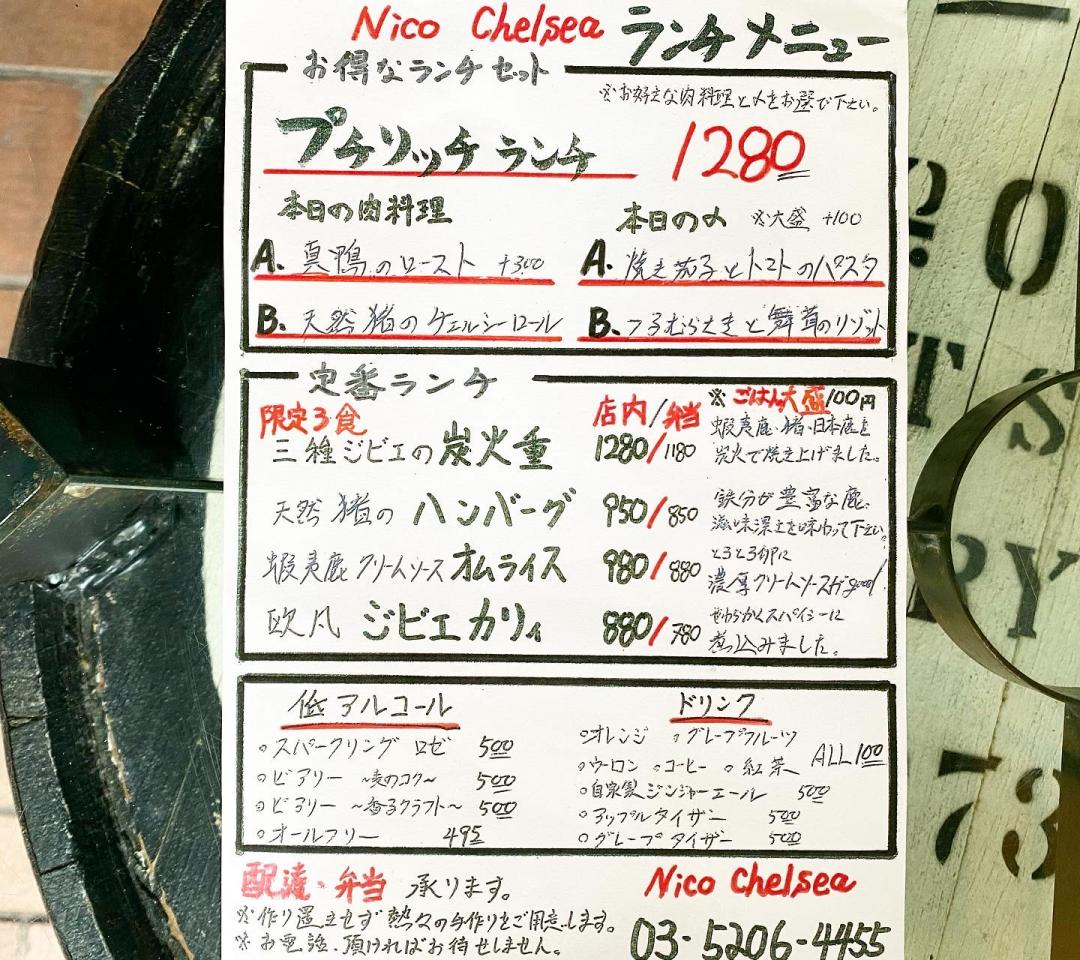 Nico Chelsea ランチメニュー
お得なランチセット
※お好きな肉料理と〆をお選び下さい。
プチリッチランチ 1280
本日の肉料理
A. 真鴨のロースト +300
B. 天然猪のケェルシーロール
本日の〆 ※大盛 +100
A. 焼き茄子とトマトのパスタ
B. つるむらさきと舞茸のリゾット
定番ランチ
限定3食
店内/弁当
※ごはん大盛100円
三種ジビエの炭火重 1280/1180
蝦夷鹿・猪・日本鹿を
炭火で焼き上げました。
天然猪のハンバーグ 950/850
鉄分が豊富な鹿、
滋味深さを味わって下さい。
蝦夷鹿クリームソースオムライス 980/880
とろとろ卵に
濃厚クリームソースがgood!
欧風ジビエカリィ 880/780
やわらかくスパイシーに
煮込みました。
低アルコール
・スパークリング ロゼ 500
・ビアリー ~麦のコク~ 500
・ビアリー ~香るクラフト~ 500
・オールフリー 495
ドリンク
・オレンジ ・グレープフルーツ
・ウーロン ・コーヒー ・紅茶 ALL100
・自家製ジンジャーエール 500
・アップルタイザー 500
・グレープタイザー 500
配達・弁当 承ります。
※作り置きせず熱々の手作りをご用意します。
※お電話頂ければお待せしません。
Nico Chelsea
03-5206-4455